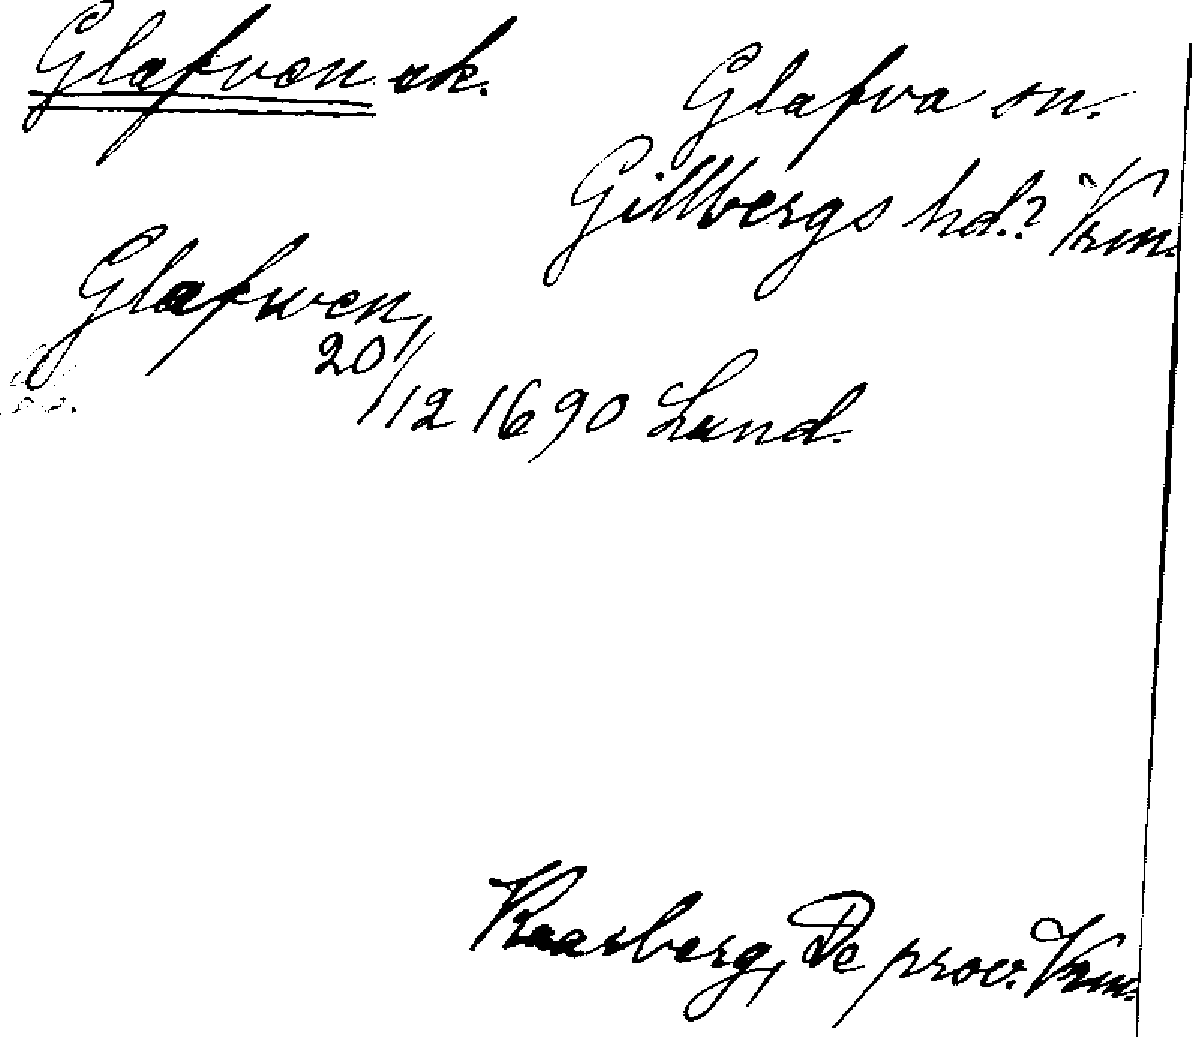 Glafven ak.
Glafva sn.
Gillbergs hd.? Vrm.
Glafwen,
20/12 1690 Lund.
De prov. Vrm.